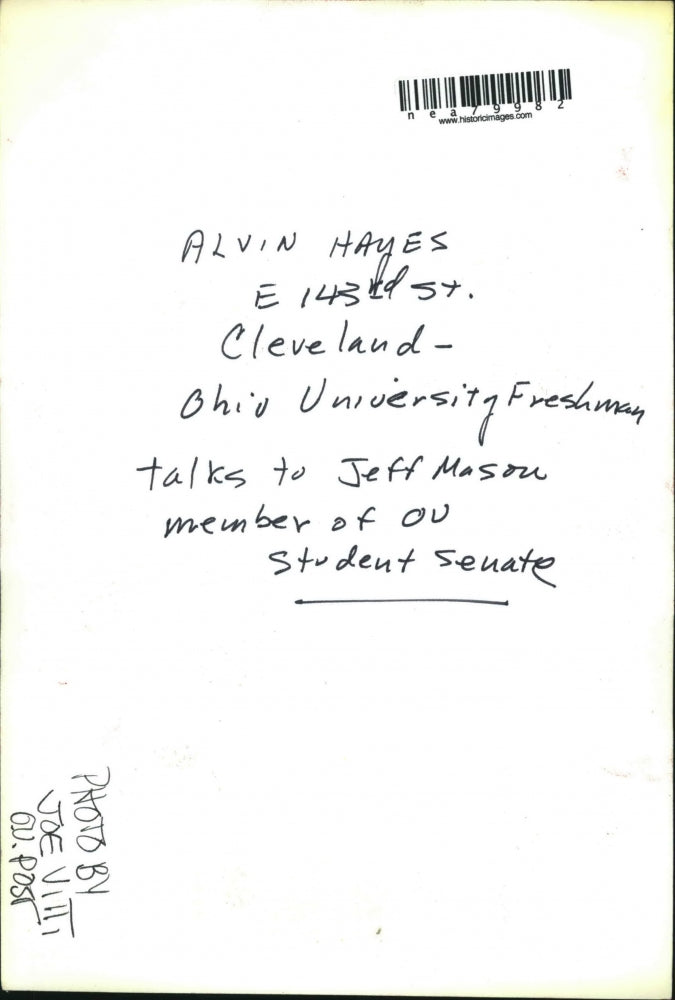 nea79982
www.historicimages.com
ALVIN HAYES
E 143rd St.
Cleveland -
Ohio University Freshman
talks to Jeff Mason
member of OU
Student Senate
PHOTO BY
JOE Villi
O.U. POST